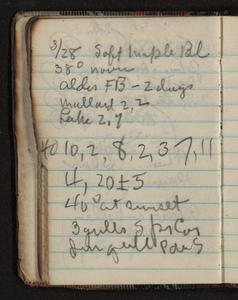 3/28 Soft Maple Bl
38° noon
alder FB - 2 dugs
mallard 2, 2
Lake 2, 7
40 10, 2, 8, 2, 37, 11
4, 20±5
40° at sunset
3 gulls 5
gull